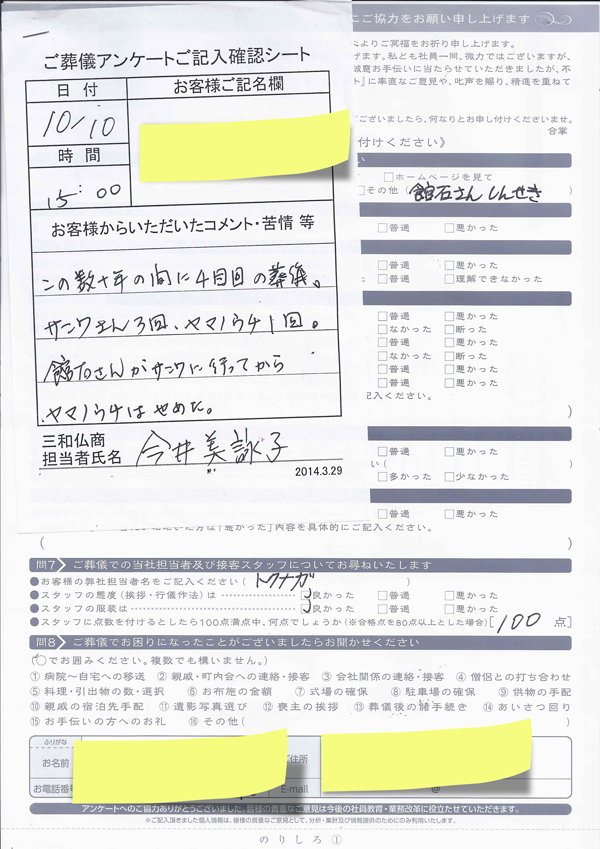 にご協力をお願い申し上げます
心よりご冥福をお祈り申し上げます。
げます。私ども社員一同、微力ではございますが、
誠意お手伝いに当たらせていただきましたが、不
ト』に率直なご意見や、叱声を賜り、精進を重ねて
ございましたら、何なりとお申し付けくださいませ。
合掌
付けください》
□ホームページを見て
□その他（ 館石さん しんせき ）
□普通 □悪かった
□普通 □悪かった
□普通 □理解できなかった
□普通 □悪かった
□なかった □断った
□普通 □悪かった
□なかった □断った
□普通 □悪かった
□普通 □悪かった
記入ください。
□普通 □悪かった
□多かった □少なかった
□普通 □悪かった
方は「悪かった」内容を具体的にご記入ください。
ご葬儀アンケートご記入確認シート
日付
お客様ご記名欄
10/10
時間
15:00
お客様からいただいたコメント・苦情 等
この数十年の間に4回目の葬儀。
サンワさん3回、ヤマノウチ1回。
館石さんがサンワに行ってから
ヤマノウチはやめた。
三和仏商
担当者氏名 今井美詠子
2014.3.29
問7 ご葬儀での当社担当者及び接客スタッフについてお尋ねいたします
●お客様の弊社担当者名をご記入ください（ トクナガ ）
●スタッフの態度（挨拶・行儀作法）は □良かった □普通 □悪かった
●スタッフの服装は □良かった □普通 □悪かった
●スタッフに点数を付けるとしたら100点満点中、何点でしょうか（※合格点を80点以上とした場合）[ 100 点]
問8 ご葬儀でお困りになったことがございましたらお聞かせください
（○でお囲みください。複数でも構いません。）
①病院～自宅への移送 ②親戚・町内会への連絡・接客 ③会社関係の連絡・接客 ④僧侶との打ち合わせ
⑤料理・引出物の数・選択 ⑥お布施の金額 ⑦式場の確保 ⑧駐車場の確保 ⑨供物の手配
⑩親戚の宿泊先手配 ⑪遺影写真選び ⑫喪主の挨拶 ⑬葬儀後の諸手続き ⑭あいさつ回り
⑮お手伝いの方へのお礼 ⑯その他（ ）
ふりがな
お名前
ご住所
お電話番号
E-mail
@
アンケートへのご協力ありがとうございました。皆様の貴重なご意見は今後の社員教育・業務改革に役立たせていただきます。
※ご記入頂きました個人情報は、皆様の貴重なご意見として、分析・集計及び情報提供のためにのみ利用いたします。
のりしろ①